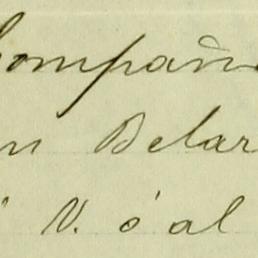 Compañ
n Belar
V. ó al